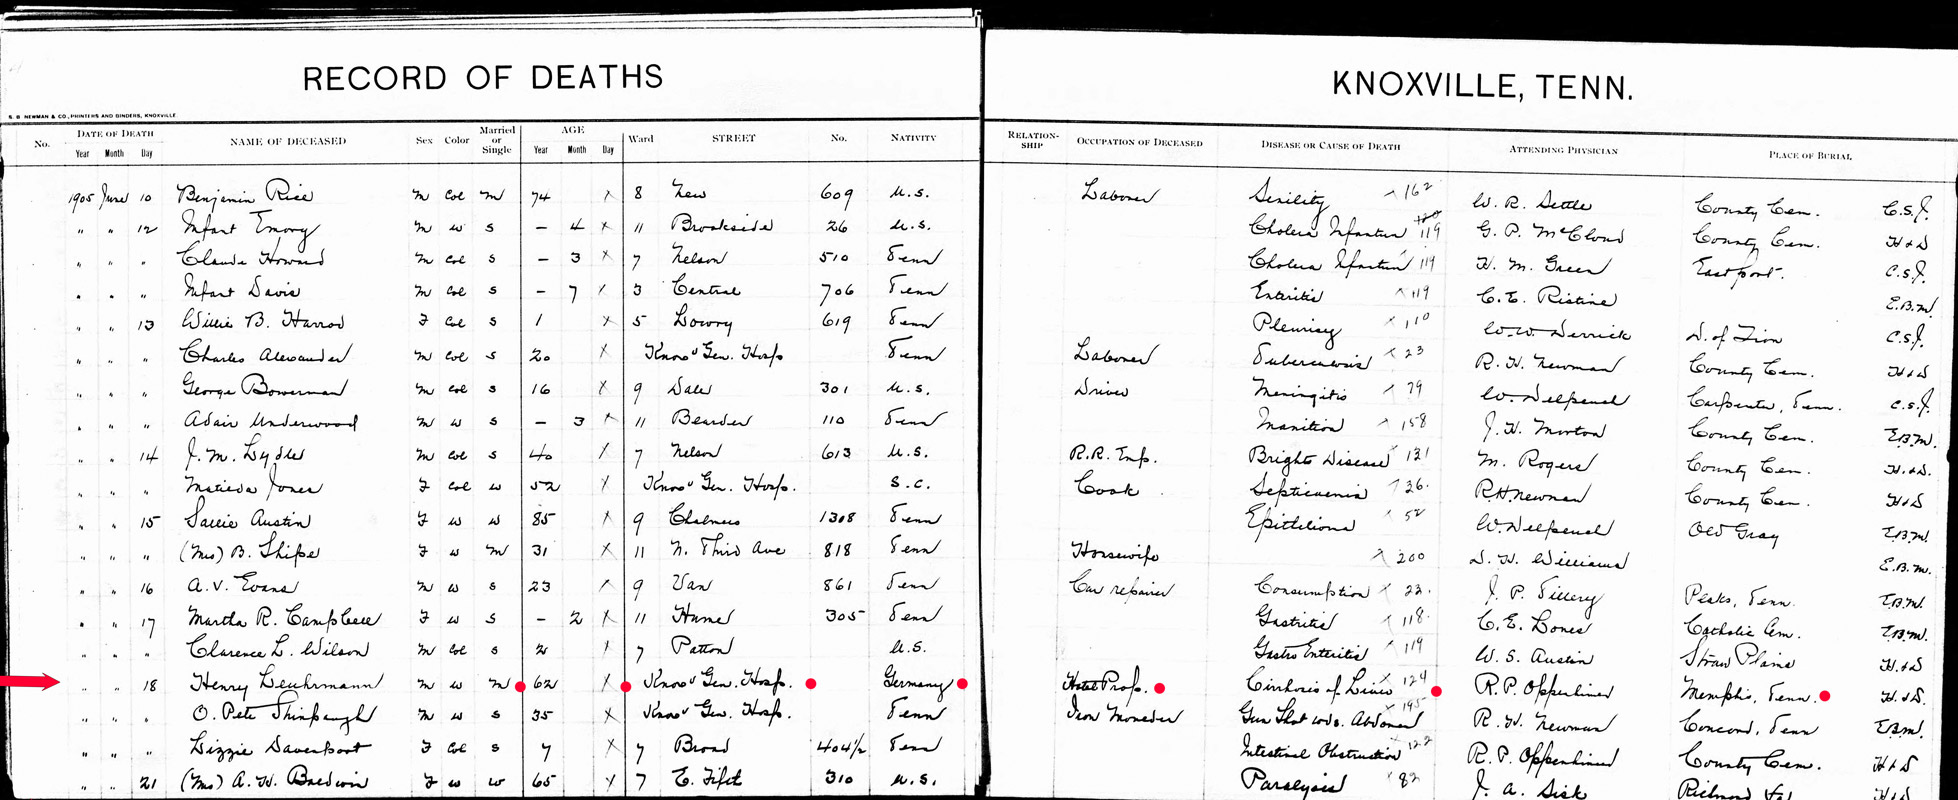 RECORD OF DEATHS KNOXVILLE, TENN.
S. B. NEWMAN & CO., PRINTERS AND BINDERS, KNOXVILLE
No. DATE OF DEATH Year Month Day NAME OF DECEASED Sex Color Married or Single AGE Year Month Day Ward STREET No. NATIVITY RELATION-SHIP OCCUPATION OF DECEASED DISEASE OR CAUSE OF DEATH ATTENDING PHYSICIAN PLACE OF BURIAL
1905 June 10 Benjamin Rice M Col M 74 X 8 New 609 U.S. Laborer Senility X 162 W. R. Settle County Cem. C.S.J.
" " 12 Infant Emory M W S - 4 X 11 Brookside 26 U.S. Cholera Infantum 119 G. P. McCloud County Cem. H & S
" " " Claude Howard M Col S - 3 X 7 Nelson 510 Tenn Cholera Infantum 119 H. M. Green Eastport. C.S.J.
" " " Infant Davis M Col S - 7 X 3 Central 706 Tenn Enteritis X 119 C. E. Ristine E.B.M.
" " 13 Willie B. Harrod F Col S 1 X 5 Lowry 619 Tenn Pleurisy X 110 W. W. Derrick D. of Zion C.S.J.
" " " Charles Alexander M Col S 20 X Knox Gen. Hosp Tenn Laborer Tuberculosis X 23 R. H. Newman County Cem. H & S
" " " George Bowerman M Col S 16 X 9 Dale 301 U.S. Driver Meningitis X 79 W. Delpeuch Carpenter, Tenn. C.S.J.
" " " Adair Underwood M W S - 3 X 11 Bearden 110 Tenn X 158 J. H. Morton County Cem. E.B.M.
" " 14 J. M. Lyde M Col S 40 X 7 Nelson 613 U.S. R.R. Emp. Brights Disease X 121 M. Rogers County Cem. H & S.
" " " Matilda Jones F Col W 52 X Knox Gen. Hosp. S.C. Cook Septicemia X 36. R.H. Newman County Cem. H & S
" " 15 Sallie Austin F W W 85 X 9 Chalmers 1308 Tenn Epithelioma X 52 W. Delpeuch Old Gray E.B.M.
" " " (Mrs) B. Shipe F W M 31 X 11 N. Third Ave 818 Tenn Housewife X 200 D. H. Williams E.B.M.
" " 16 A. V. Evans M W S 23 X 9 Van 861 Tenn Car repairer Consumption X 23. J. P. Tillery Peaks, Tenn. E.B.M.
" " 17 Martha R. Campbell F W S - 2 X 11 Hume 305 Tenn Gastritis X 118. C. E. Lones Catholic Cem. E.B.M.
" " " Clarence L. Wilson M Col S 2 X 7 Patton U.S. Gastro Enteritis X 119 W. S. Austin Straw Plains H & S
" " 18 Henry Leuhrmann M W M 62 X Knox Gen. Hosp. Germany Hotel Prop. Cirrhosis of Liver X 124 R. P. Oppenheimer Memphis, Tenn. H & S.
" " " O. Pete Thinpaugh M W S 35 X Knox Gen. Hosp. Tenn Iron Moulder Gun Shot wds. Abdomen X 195 R. H. Newman Concord, Tenn E.B.M.
" " " Lizzie Davenport F Col S 7 X 7 Broad 404 1/2 Tenn Intestinal Obstruction 122 R. P. Oppenheimer County Cem. H & S
" " 21 (Mrs) A. H. Baldwin F W W 65 X 7 E. Fifth 310 U.S. Paralysis X 82 J. A. Sisk Richmond H & S